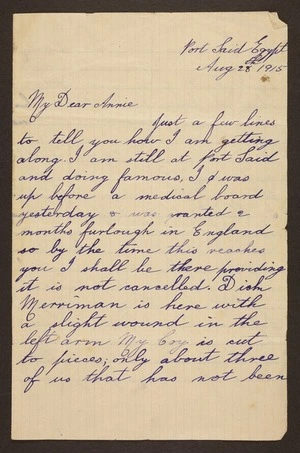 Port Said Egypt
Aug 28th 1915
My Dear Annie
Just a few lines
to tell you how I am getting
along. I am still at Port Said
and doing famous, I was
up before a medical board
yesterday & was wanted 2
months furlough in England
so by the time this reaches
you I shall be there providing
it is not cancelled. Dick
Merriman is here with
a slight wound in the
left arm My Coy is cut
to pieces; only about three
of us that has not been